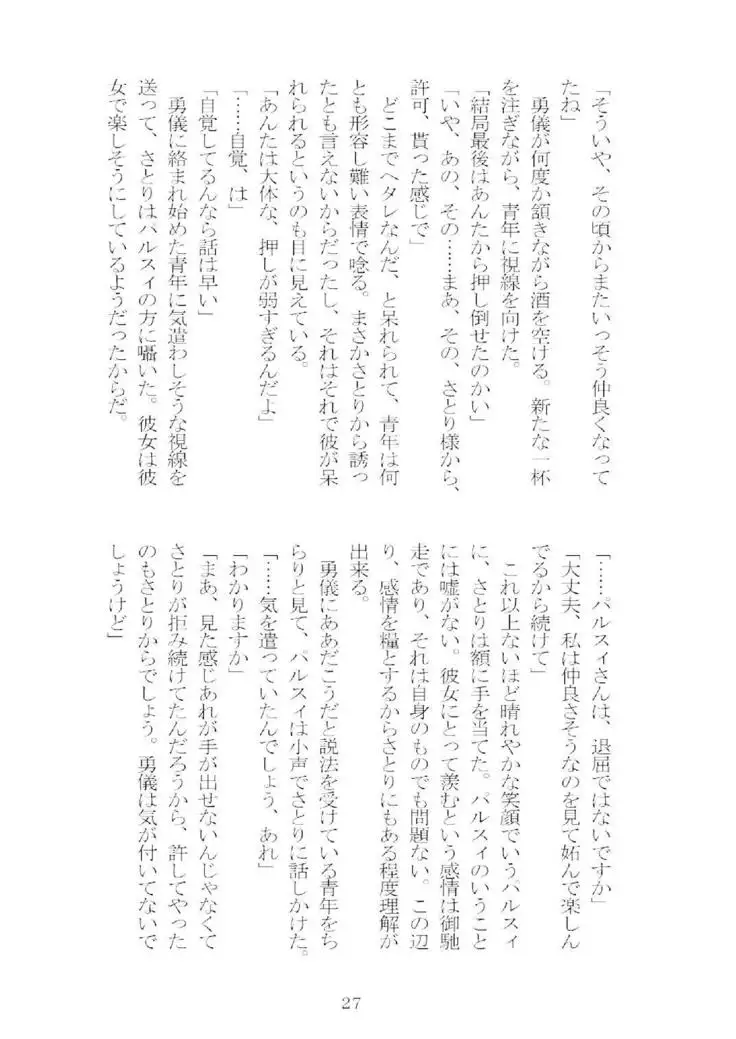 「そういや、その頃からまたいっそう仲良くなって
たね」
　勇儀が何度か頷きながら酒を空ける。新たな一杯
を注ぎながら、青年に視線を向けた。
「結局最後はあんたから押し倒せたのかい」
「いや、あの、その……まあ、その、さとり様から、
許可、貰った感じで」
　どこまでヘタレなんだ、と呆れられて、青年は何
とも形容し難い表情で唸る。まさかさとりから誘っ
たとも言えないからだったし、それはそれで彼が呆
れられるというのも目に見えている。
「あんたは大体な、押しが弱すぎるんだよ」
「……自覚、は」
「自覚してるんなら話は早い」
　勇儀に絡まれ始めた青年に気遣わしそうな視線を
送って、さとりはパルスィの方に囁いた。彼女は彼
女で楽しそうにしているようだったからだ。
「……パルスィさんは、退屈ではないですか」
「大丈夫、私は仲良さそうなのを見て妬んで楽しん
でるから続けて」
　これ以上ないほど晴れやかな笑顔でいうパルスィ
に、さとりは額に手を当てた。パルスィのいうこと
には嘘がない。彼女にとって羨むという感情は御馳
走であり、それは自身のものでも問題ない。この辺
り、感情を糧とするからさとりにもある程度理解が
出来る。
　勇儀にああだこうだと説法を受けている青年をち
らりと見て、パルスィは小声でさとりに話しかけた。
「……気を遣っていたんでしょう、あれ」
「わかりますか」
「まあ、見た感じあれが手が出せないんじゃなくて
さとりが拒み続けてたんだろうから、許してやった
のもさとりからでしょう。勇儀は気が付いてないで
しょうけど」
27